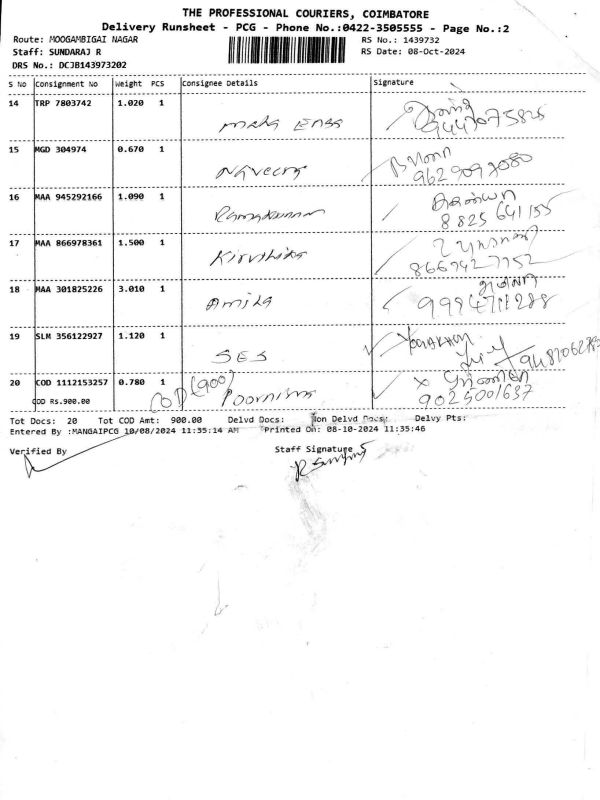 THE PROFESSIONAL COURIERS, COIMBATORE
Delivery Runsheet - PCG - Phone No.:0422-3505555 - Page No.:2
Route: MOOGAMBIGAI NAGAR RS No.: 1439732
Staff: SUNDARAJ R RS Date: 08-Oct-2024
DRS No.: DCJB143973202
S No Consignment No Weight PCS Consignee Details Signature
14 TRP 7803742 1.020 1
15 MGD 304974 0.670 1
9629097080
16 MAA 945292166 1.090 1
Ramkumar 8825 641155
17 MAA 866978361 1.500 1
Kiruthika 8667427752
18 MAA 301825226 3.010 1
9994711288
19 SLM 356122927 1.120 1
SES
20 COD 1112153257 0.780 1
COD Rs.900.00 COD (900) Poornima 9025001637
Tot Docs: 20 Tot COD Amt: 900.00 Delvd Docs: Non Delvd Docs: Delvy Pts:
Entered By :MANGAIPCG 10/08/2024 11:35:14 AM Printed On: 08-10-2024 11:35:46
Verified By Staff Signature